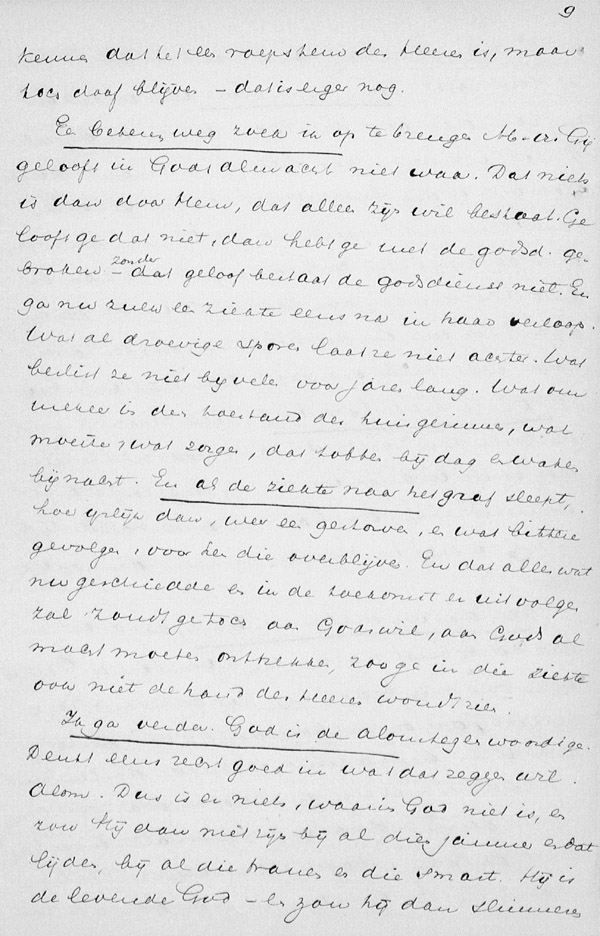 9
kennen dat het een roepstem des Heeren is, maar
toch doof blijven – dat is erger nog.
En bekeering zoekt in op te brengen M. is. Gij
gelooft in Gods almacht niet waar. Dat niets
is dan door Hem, dat alles zijn wil bestaat. Ge
looft ge dat niet, dan hebt ge met de godsd. ge-
broken – zonder dat geloof bestaat de godsdienst niet. En
ga nu zulk een ziekte eens na in haar verloop.
Wat al droevige sporen laat ze niet achter. Wat
beslist ze niet bij velen voor jaren lang. Wat om
mekeer in den toestand des huisgezinnes, wat
moeite, wat zorgen, dat tobben bij dag en waken
bij nacht. En als de ziekte naar het graf sleept,
hoe grlijk dan, weer een gestorven, en wat bittere
gevolgen, voor hen die overblijven. En dat alles wat
nu geschiedde en in de toekomst er uit volgen
zal zoudt ge toch aan Gods wil, aan Gods al
macht moeten onttrekken, zoo ge in die ziekte
ook niet de hand des Heeren woudt zien.
Ik ga verder. God is de Alomtegenwoordige.
Denkt eens recht goed in wat dat zeggen wil.
Alom. Dus is er niets, waarin God niet is, en
zou Hij dan niet zijn bij al dien jammer en dat
lijden, bij al die tranen en die smart. Hij is
de levende God – en zou hij dan sluimeren